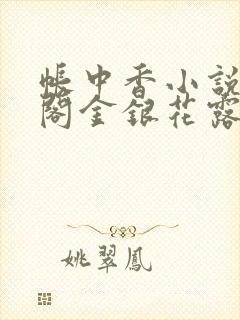 帳中香小說
閣金銀花露
姚翠鳳